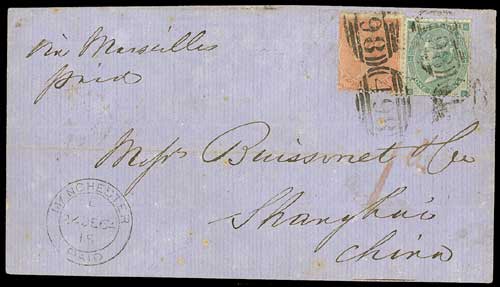 via Marseilles
paid
Messrs Buissonet & Co
Shanghai
China
MANCHESTER
PAID
498